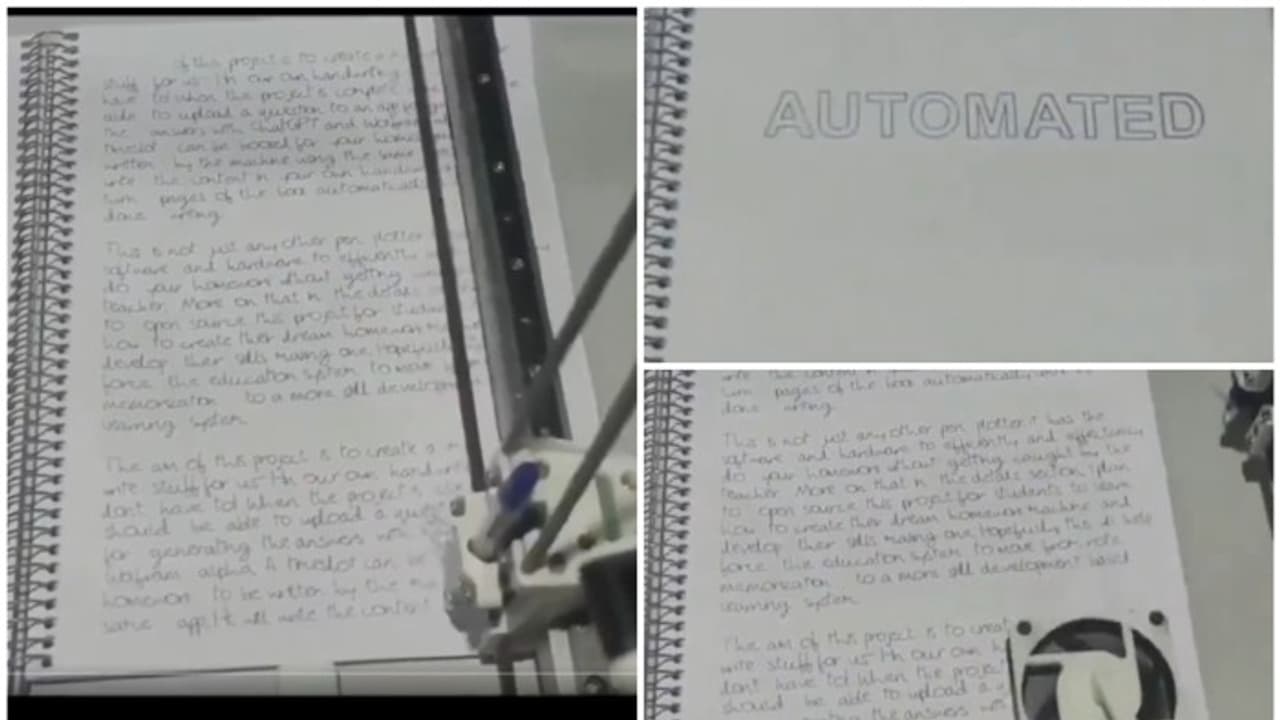 of this project is to create a
stuff for us in our own handwriting
have to when the project is complete
able to upload a question to an app
the answers with ChatGPT and Wolfram
timeslot can be booked for your home
written by the machine using the same
write the content in your own handwriting
turn pages of the book automatically
done writing
This is not just any other pen plotter
software and hardware to efficiently
do your homework without getting
teacher. More on that in the details
to open source this project for students
how to create their dream homework machine
develop their skills making one. Hopefully
force the education system to move
memorization to a more skill development
learning system.
The aim of this project is to create a
write stuff for us in our own hand
dont have to! When the project is
should be able to upload a quest
for generating the answers with
Wolfram alpha. A timeslot can be
homework to be written by the
same app! It will write the content
AUTOMATED
write the content in
turn pages of the book automatically
done writing.
This is not just any other pen plotter, it has the
software and hardware to efficiently and effectively
do your homework without getting caught by the
teacher. More on that in the details section. I plan
to open source this project for students to learn
how to create their dream homework machine and
develop their skills making one. Hopefully this will help
force the education system to move from rote
memorization to a more skill development based
learning system.
The aim of this project is to creat
write stuff for us in our own h
dont have to! When the project
should be able to upload a
the answers